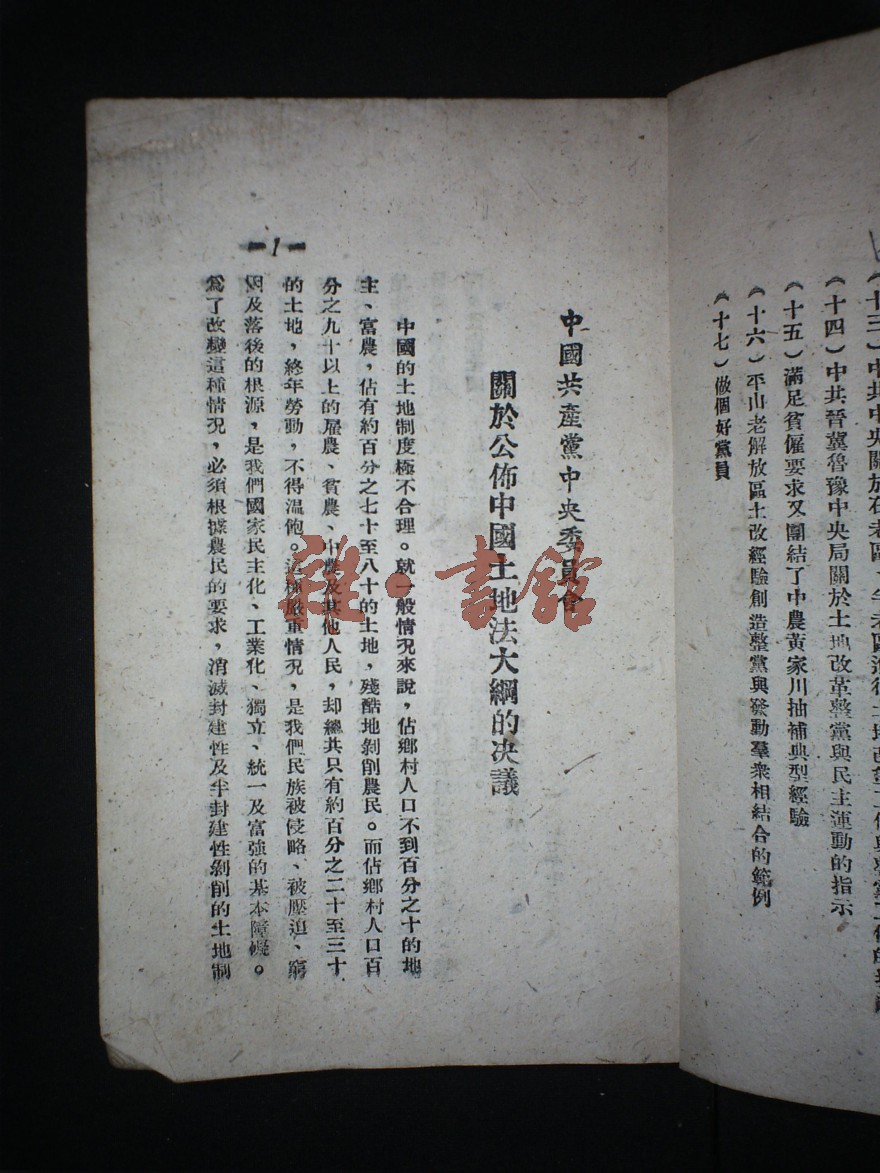 （十三）中共中央關於在老區、半老區進行土地改革工作與整黨工作的指示
（十四）中共晉冀魯豫中央局關於土地改革整黨與民主運動的指示
（十五）滿足貧僱要求又團結了中農黃家川抽補典型經驗
（十六）平山老解放區土改經驗創造整黨與發動羣衆相結合的範例
（十七）做個好黨員
中國共產黨中央委員會
關於公佈中國土地法大綱的決議
中國的土地制度極不合理。就一般情况來說，佔鄉村人口不到百分之十的地
主、富農，佔有約百分之七十至八十的土地，殘酷地剝削農民。而佔鄉村人口百
分之九十以上的雇農、貧農、中農及其他人民，却總共只有約百分之二十至三十
的土地，終年勞動，不得溫飽。這種嚴重情况，是我們民族被侵略、被壓迫、窮
困及落後的根源，是我們國家民主化、工業化、獨立、統一及富強的基本障礙。
爲了改變這種情况，必須根據農民的要求，消滅封建性及半封建性剝削的土地制
-1-
雜·書館